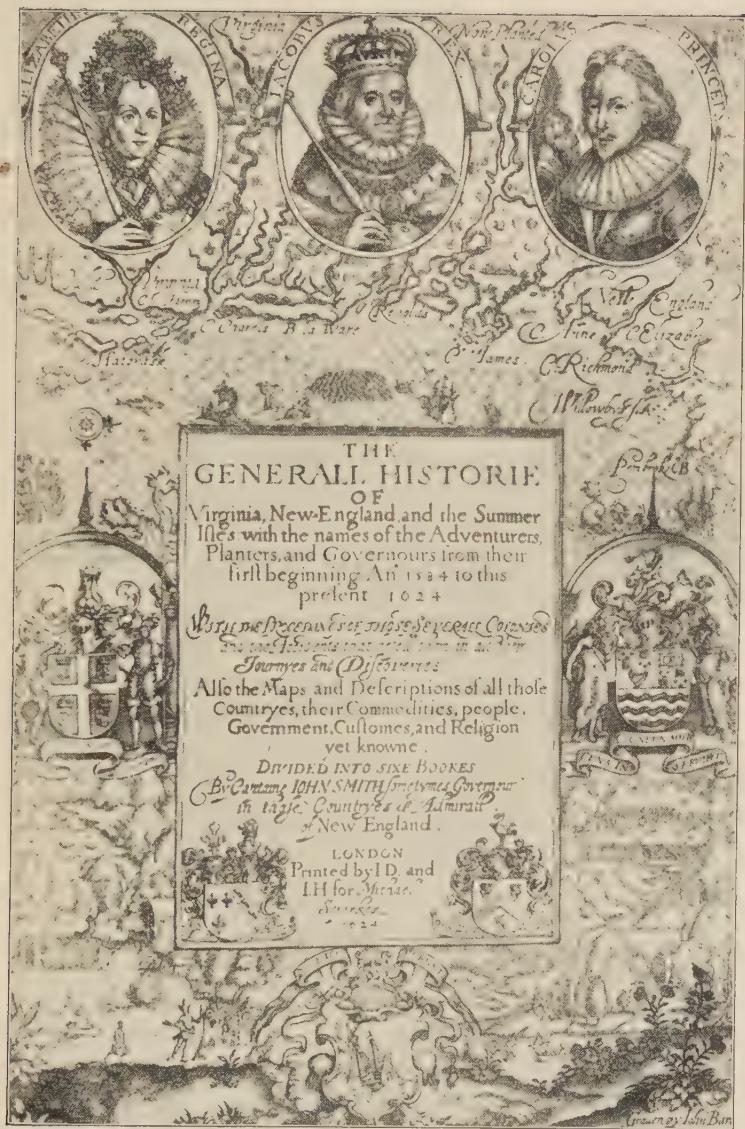 ELIZABETHA REGINA
IACOBUS REX
CAROLUS PRINCEPS
Virginia
Now Planted
C. Charles
B. la Ware
New England
C. Anne
C. Elizabeth
C. James
C. Richmond
Willowby's
Pembrok B
THE
GENERALL HISTORIE
OF
Virginia, New-England, and the Summer
Iſles with the names of the Adventurers,
Planters, and Governours from their
firſt beginning Anº 1584 to this
preſent 1624
WITH THE PROCEEDINGS OF THOSE SEVERALL COLONIES
and the Accidents that befell them in all their
Journyes and Diſcoveries
Alſo the Maps and Deſcriptions of all thoſe
Countryes, their Commodities, people,
Government, Cuſtomes, and Religion
yet knowne.
DIVIDED INTO SIXE BOOKES
By Captaine IOHN SMITH ſometymes Governour
in thoſe Countryes & Admirall
of New England.
LONDON
Printed by I D. and
I.H for Michael
Sparkes
1624
Graven by Iohn Bar